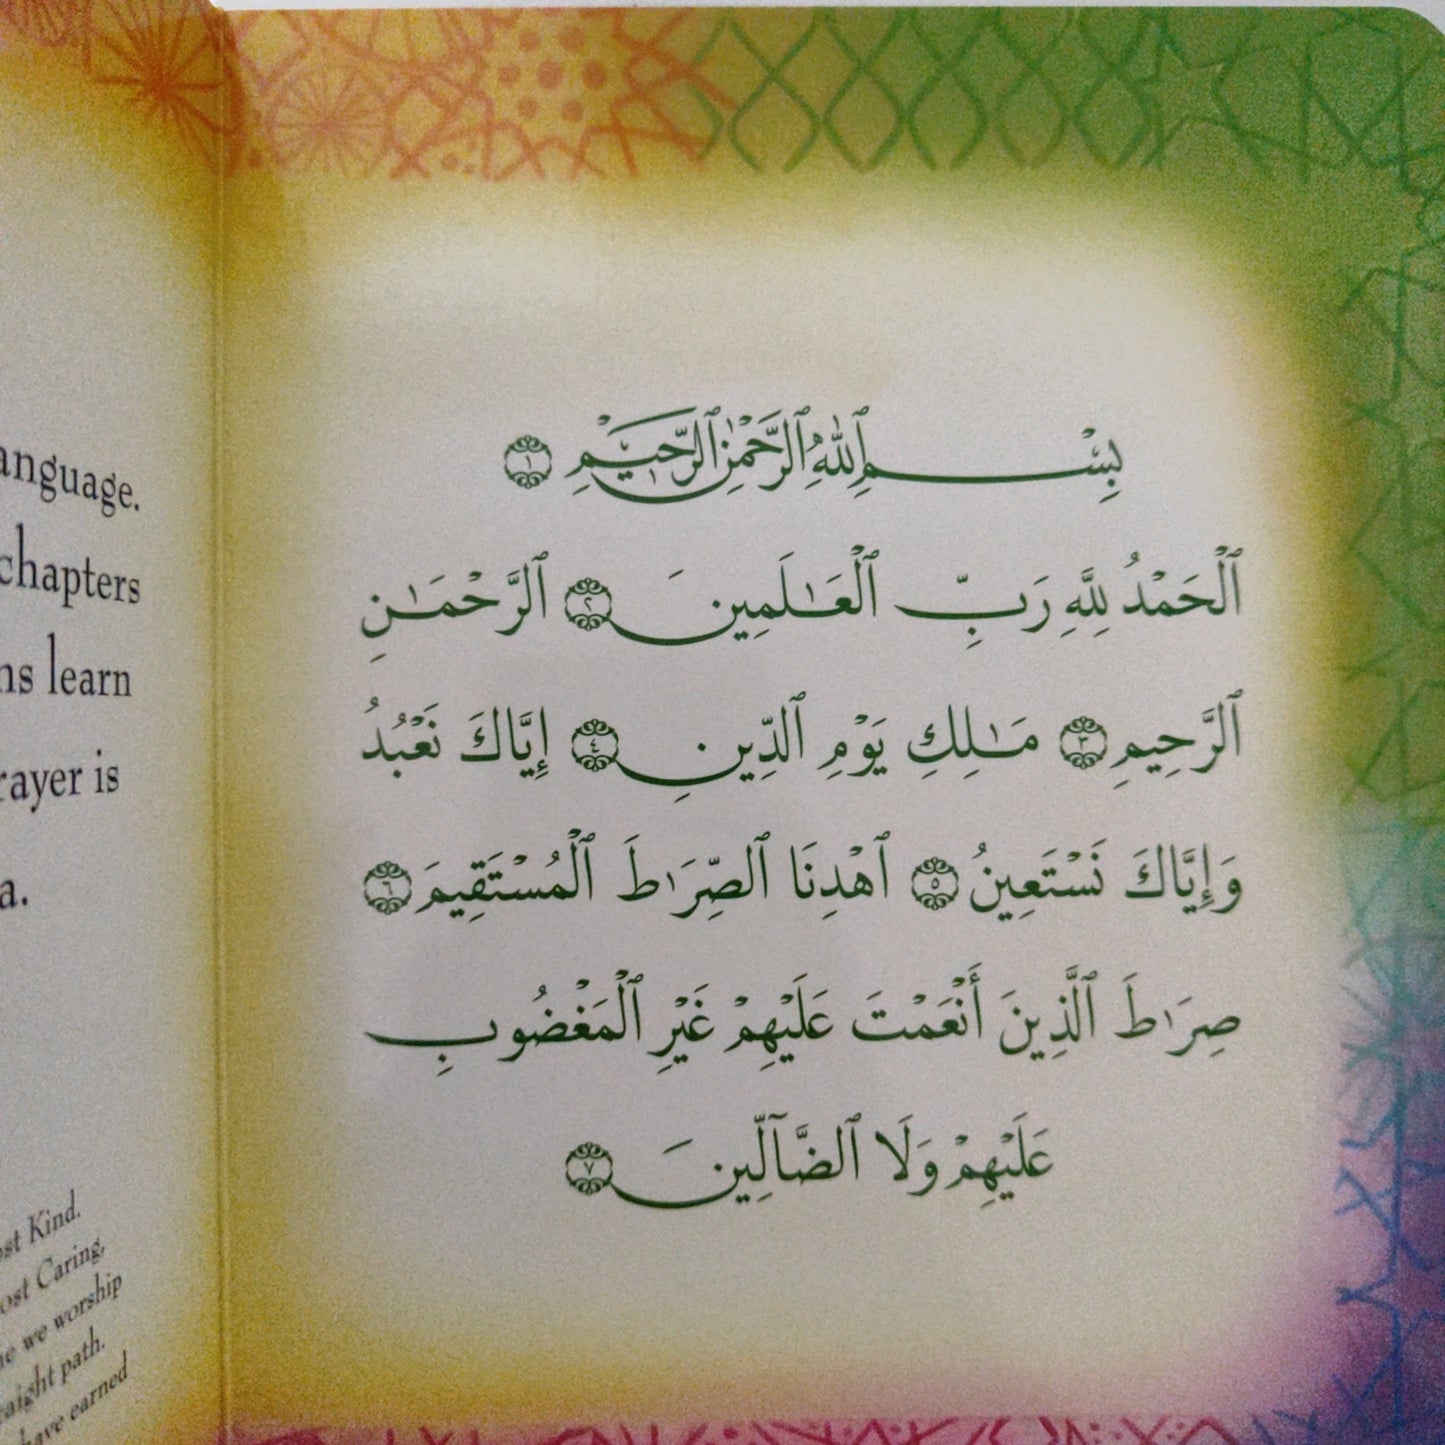 anguage.
chapters
ns learn
rayer is
a.
ost Kind.
ost Caring,
ne we worship
raight path.
have earned
بِسْمِ ٱللَّهِ ٱلرَّحْمَٰنِ ٱلرَّحِيمِ ١
ٱلْحَمْدُ لِلَّهِ رَبِّ ٱلْعَـٰلَمِينَ ٢ ٱلرَّحْمَـٰنِ
ٱلرَّحِيمِ ٣ مَـٰلِكِ يَوْمِ ٱلدِّينِ ٤ إِيَّاكَ نَعْبُدُ
وَإِيَّاكَ نَسْتَعِينُ ٥ ٱهْدِنَا ٱلصِّرَٰطَ ٱلْمُسْتَقِيمَ ٦
صِرَٰطَ ٱلَّذِينَ أَنْعَمْتَ عَلَيْهِمْ غَيْرِ ٱلْمَغْضُوبِ
عَلَيْهِمْ وَلَا ٱلضَّآلِّينَ ٧